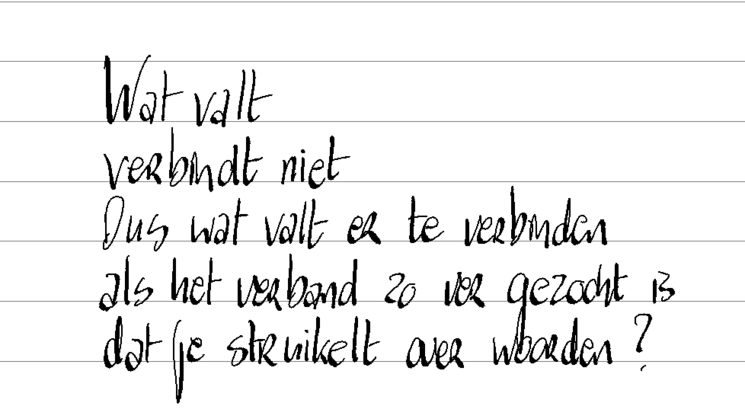 Wat valt
verbindt niet
Dus wat valt er te verbinden
als het verband zo ver gezocht is
dat je struikelt over woorden?